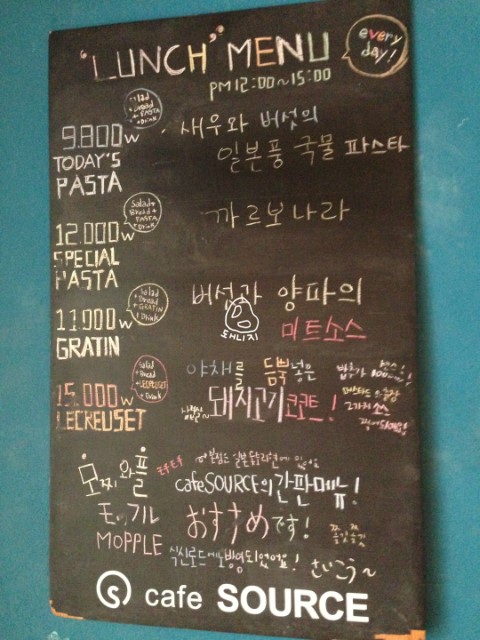 "LUNCH" MENU
every day!
PM 12:00~15:00
9.800w
TODAY'S
PASTA
새우와 버섯의
일본풍 국물 파스타
12.000w
SPECIAL
PASTA
Salad+
Bread+
PASTA
+Drink
까르보나라
11.000w
GRATIN
Salad
+Bread
+GRATIN
+Drink
버섯과 양파의
미트소스
돼니지
15.000w
LECREUSET
Salad
+Bread
+LECREUSET
+Drink
야채를 듬뿍넣은
돼지고기 코코트!
모찌와플
モッフル
MOPPLE
cafe SOURCE의 간판메뉴!
おすすめです!
식신로드에 방영되었어요!
さいこう~
cafe SOURCE